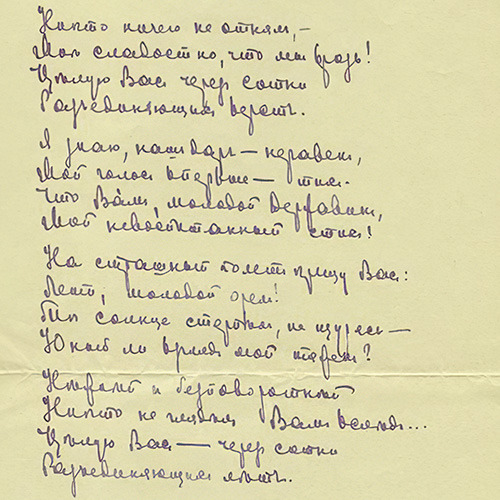 Никто ничего не отнял, —
Мне сладостно, что мы врозь!
Целую Вас через сотни
Разъединяющих верст.
Я знаю, наш дар — неравен,
Мой голос впервые — тих.
Что Вам, молодой Державин,
Мой невоспитанный стих!
На страшный полет крещу Вас:
Лети, молодой орел!
Ты солнце стерпел, не щурясь —
Юный ли взгляд мой тяжел?
Нежней и безповоротней
Никто не глядел Вам вслед...
Целую Вас — через сотни
Разъединяющих лет.